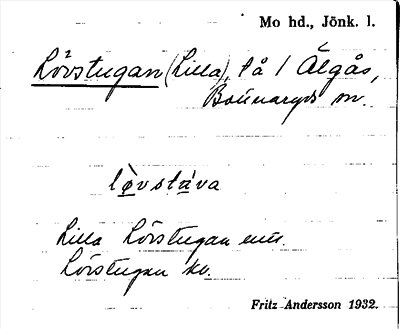 Mo hd., Jönk. l.
Lövstugan (Lilla), tå / Älgås,
Bottnaryds sn.
lövstáva
Lilla Lövstugan
Lövstugan kv.
Fritz Andersson 1932.